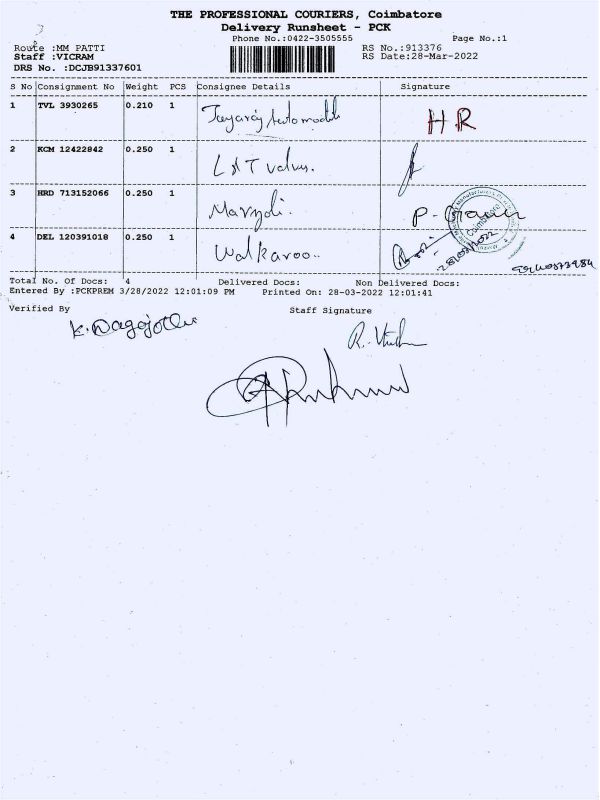 THE PROFESSIONAL COURIERS, Coimbatore
Delivery Runsheet - PCK
Phone No.:0422-3505555 Page No.:1
Route :MM PATTI RS No.:913376
Staff :VICRAM RS Date:28-Mar-2022
DRS No. :DCJB91337601
S No Consignment No Weight PCS Consignee Details Signature
1 TVL 3930265 0.210 1 HR
2 KCM 12422842 0.250 1 L&T valves.
3 HRD 713152066 0.250 1
4 DEL 120391018 0.250 1 Walkaroo..
28/03/2022
Total No. Of Docs: 4 Delivered Docs: Non Delivered Docs:
Entered By :PCKPREM 3/28/2022 12:01:09 PM Printed On: 28-03-2022 12:01:41
Verified By Staff Signature